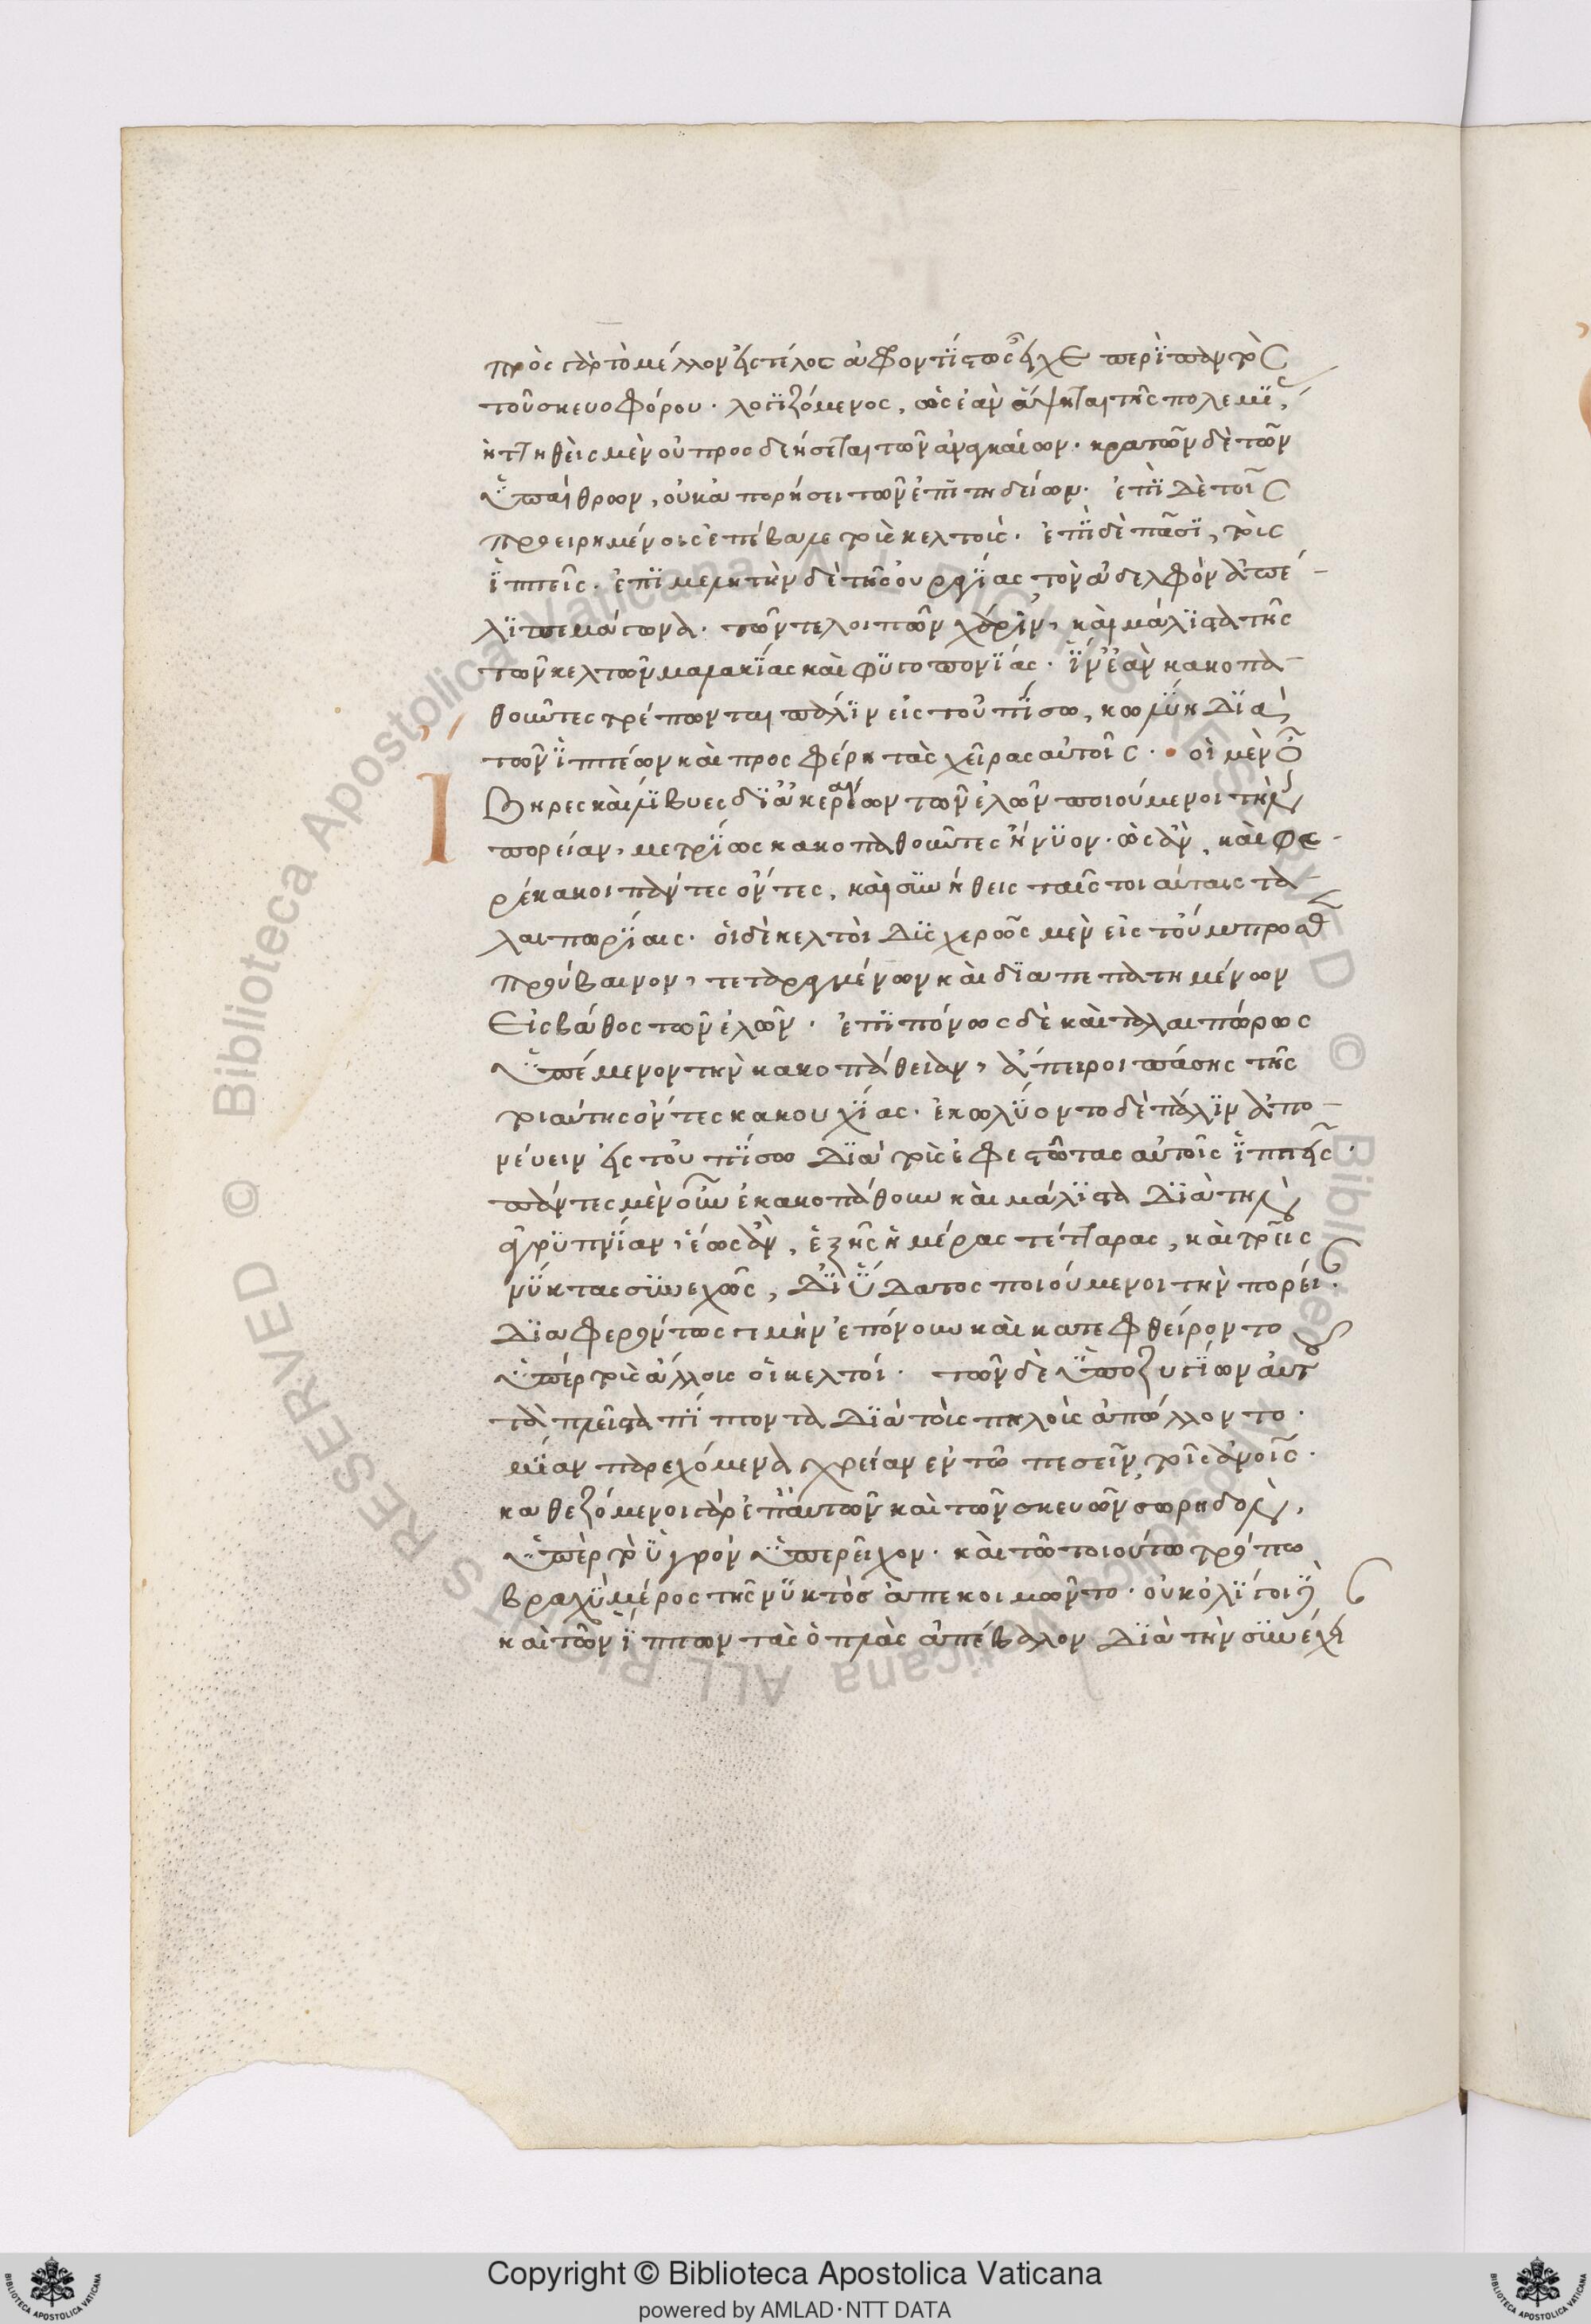 πρὸς γὰρ τὸ μέλλον εἰς τέλος ἀφροντίστως εἶχε περὶ παντὸς
τοῦ σκευοφόρου. λογιζόμενος, ὡς ἐὰν ἅψηται τῆς πολεμί,
ἡττηθεὶς μὲν οὐ προσδεήσεται τῶν ἀναγκαίων. κρατῶν δὲ τῶν
ὑπαίθρων, οὐκ ἀπορήσει τῶν ἐπιτηδείων. ἐπὶ δὲ τοῖς
προειρημένοις ἐπέβαλε τοὺς κελτοὺς. ἐπὶ δὲ πᾶσι, τοὺς
ἱππεῖς. ἐπιμελητὴν δὲ τῆς οὐραγίας τὸν ἀδελφὸν ἀπέ-
λιπε μάγωνα. τῶν τε λοιπῶν χάριν, καὶ μάλιστα τῆς
τῶν κελτῶν μαλακίας καὶ φυγοπονίας. ἵν' ἐὰν κακοπα-
θοῦντες τρέπωνται πάλιν εἰς τοὐπίσω, κωλύῃ διὰ
τῶν ἱππέων καὶ προσφέρῃ τὰς χεῖρας αὐτοῖς. οἱ μὲν οὖν
Ἴ
βηρες καὶ λίβυες δι' ἀκεραίων τῶν ἑλῶν ποιούμενοι τὴν
πορείαν, μετρίως κακοπαθοῦντες ἤνυον. ὡς ἂν, καὶ φε-
ρέκακοι πάντες ὄντες, καὶ συνήθεις ταῖς τοιαύταις τα-
λαιπωρίαις. οἱ δὲ κελτοὶ δυσχερῶς μὲν εἰς τοὔμπροσθ
προύβαινον, τεταραγμένων καὶ διαπεπατημένων
εἰς βάθος τῶν ἑλῶν. ἐπιπόνως δὲ καὶ ταλαιπώρως
ὑπέμενον τὴν κακοπάθειαν, ἄπειροι πάσης τῆς
τοιαύτης ὄντες κακουχίας. ἐκωλύοντο δὲ πάλιν ἀπο-
νεύειν εἰς τοὐπίσω διὰ τοὺς ἐφεστῶτας αὐτοῖς ἱππεῖς.
πάντες μὲν οὖν ἐκακοπάθουν καὶ μάλιστα διὰ τὴν
ἀγρυπνίαν, ἕως ἂν, ἑξῆς ἡμέρας τέτταρας, καὶ τρεῖς
νύκτας συνεχῶς, δι' ὕδατος ποιούμενοι τὴν πορεί.
διαφερόντως γε μὴν ἐπόνουν καὶ κατεφθείροντο
ὑπὲρ τοὺς ἄλλους οἱ κελτοί. τῶν δὲ ὑποζυγίων αὐτ
τὰ πλεῖστα πίπτοντα διὰ τοὺς πηλοὺς ἀπώλλοντο.
μίαν παρεχόμενα χρείαν ἐν τῷ πεσεῖν τοῖς ἀνοις.
καθεζόμενοι γὰρ ἐπ' αὐτῶν καὶ τῶν σκευῶν σωρηδὸν,
ὑπὲρ τὸ ὑγρὸν ὑπερεῖχον. καὶ τῷ τοιούτῳ τρόπῳ
βραχὺ μέρος τῆς νυκτὸς ἀπεκοιμῶντο. οὐκ ὀλίγοι δὲ
καὶ τῶν ἵππων τὰς ὁπλὰς ἀπέβαλον διὰ τὴν συνέχει